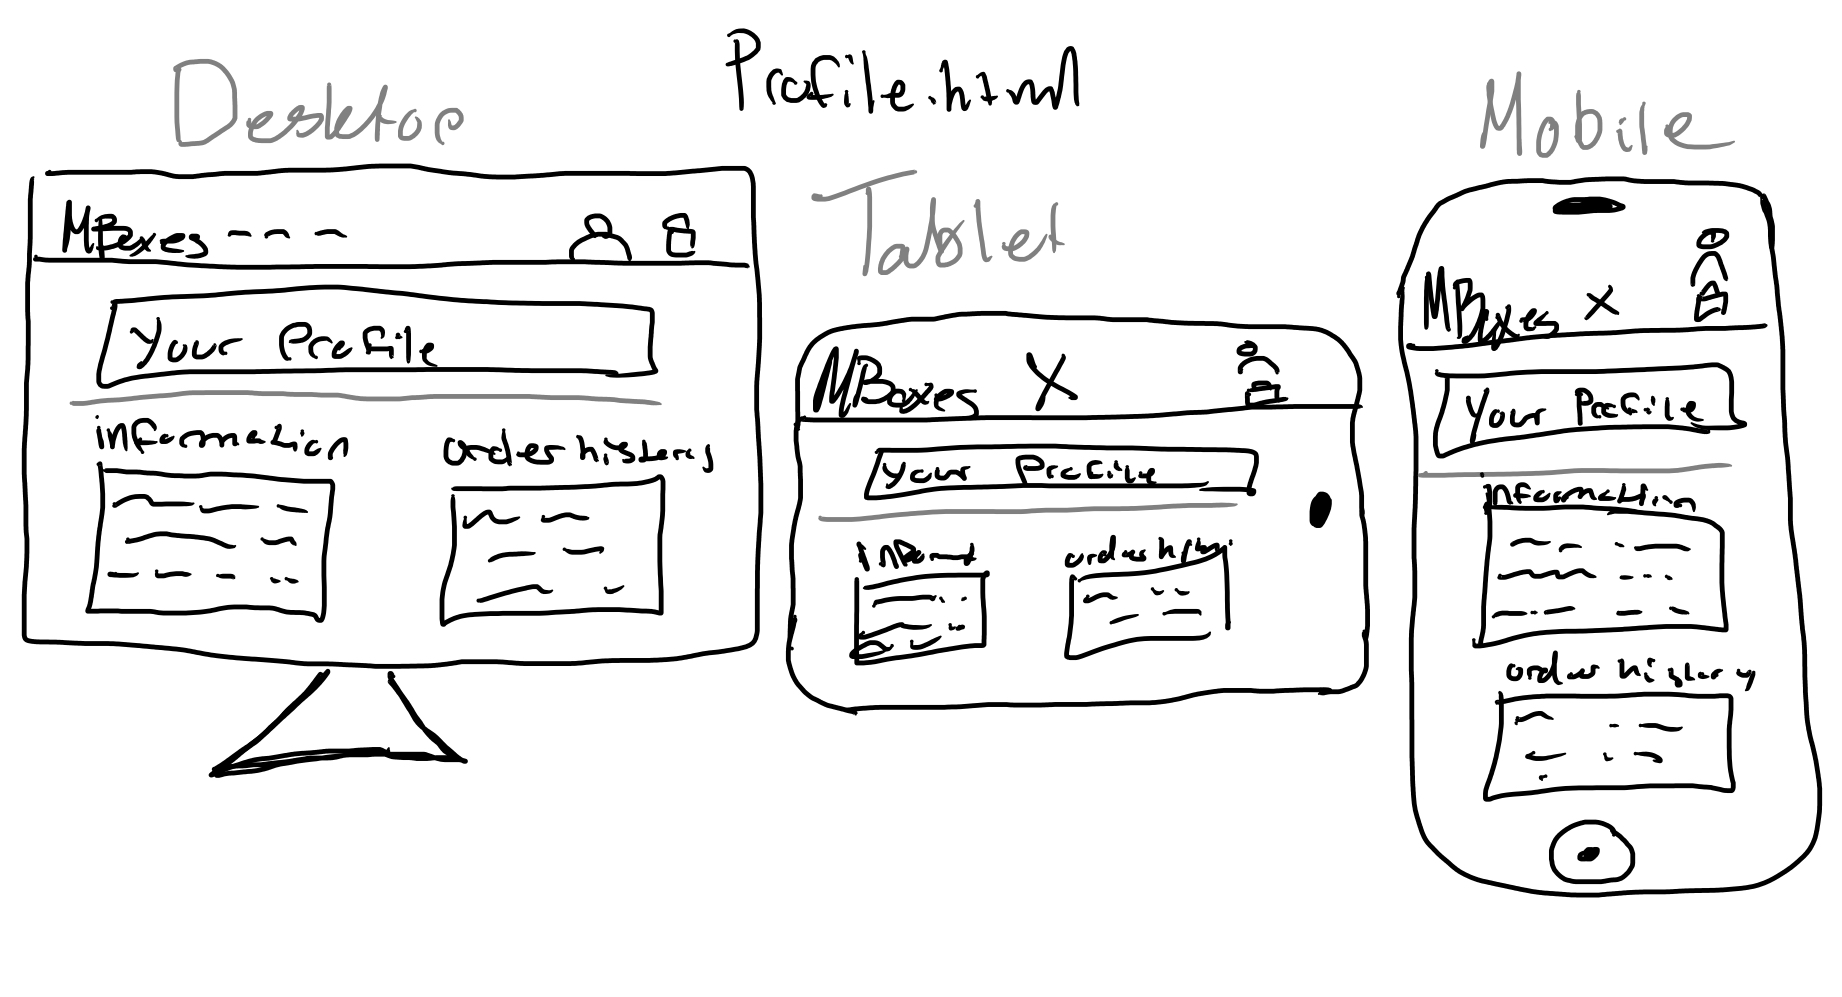 Profile.html
Desktop
MBoxes
Your Profile
information
order history
Tablet
MBoxes X
Your Profile
informat
order history
Mobile
MBoxes X
Your Profile
information
order history